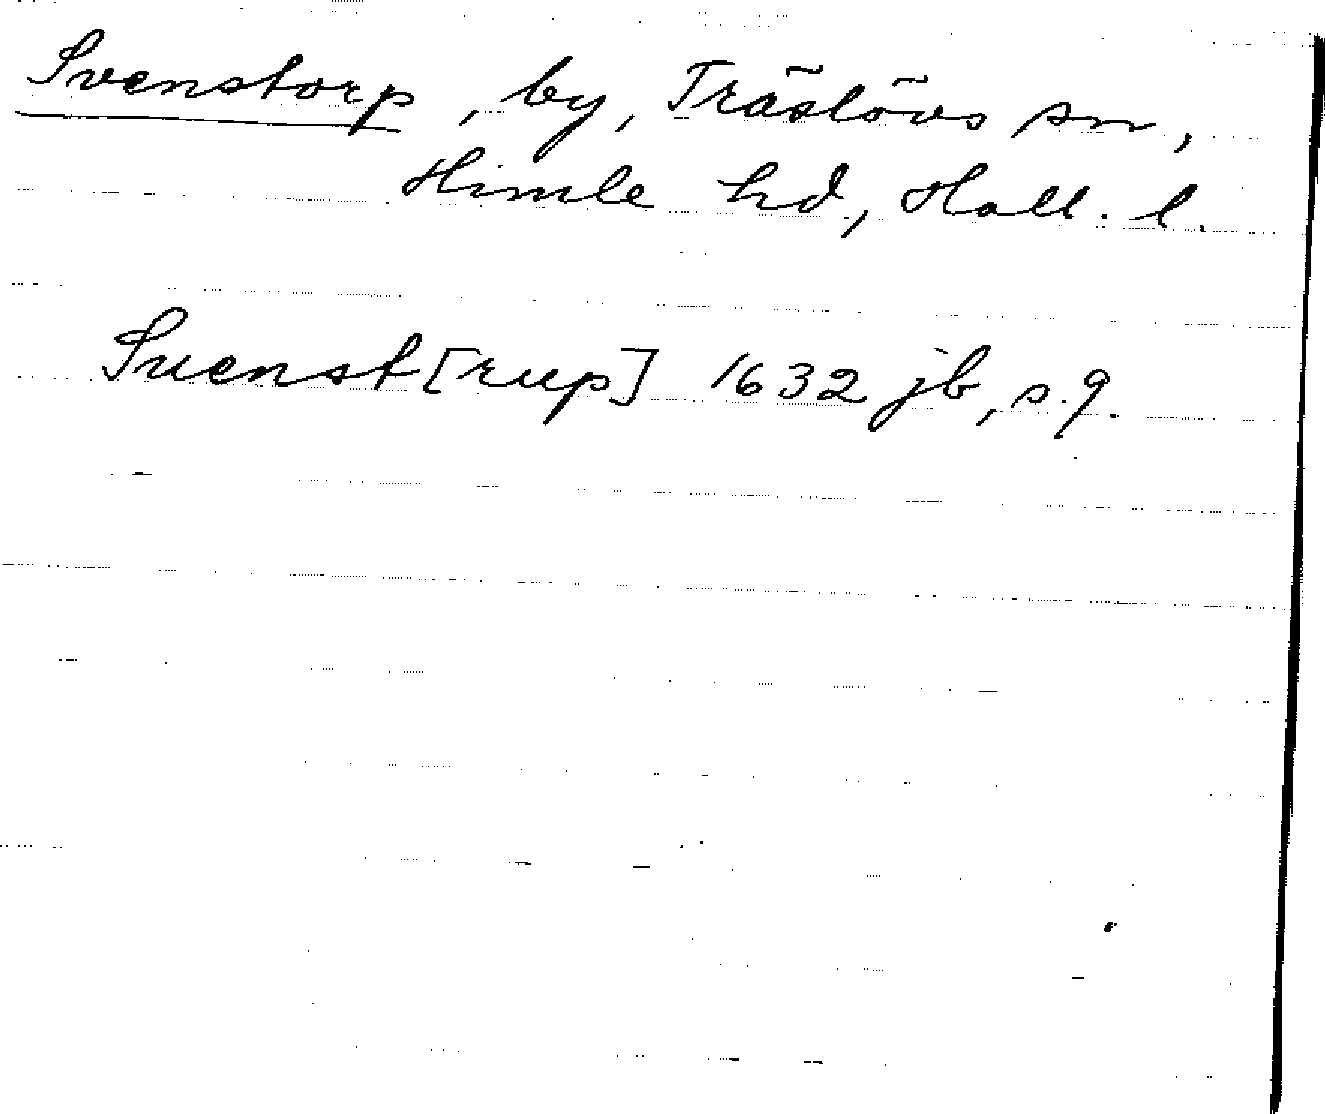 Svenstorp, by, Träslövs sn,
Himle hd, Hall. l.
Suenst[rup] 1632 jb, s. 9.